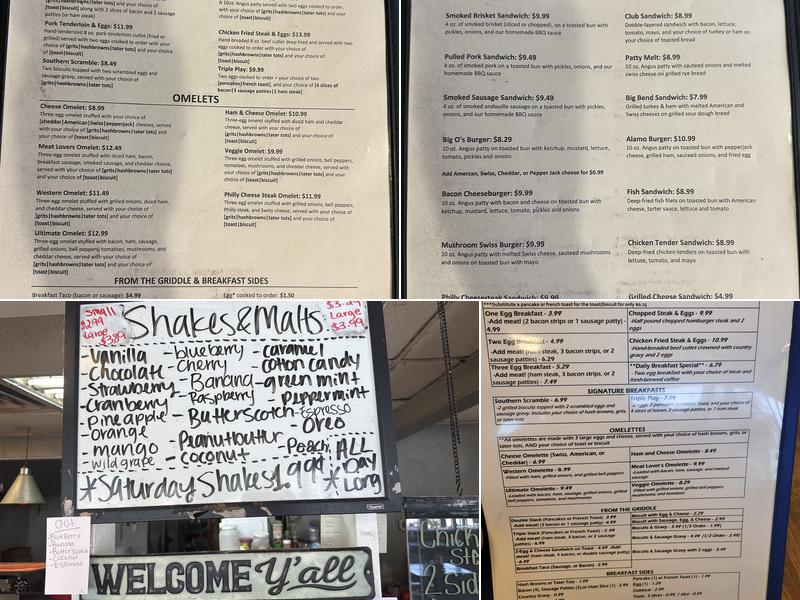 [toast|biscuit] along with 2 slices of bacon and 2 sausage
patties (or ham steak)
Pork Tenderloin & Eggs: $11.99
Hand-tenderized 8 oz. pork tenderloin cutlet (fried or
grilled) served with two eggs cooked to order with your
choice of [grits|hashbrowns|tater tots] and your choice
of [toast|biscuit]
Southern Scramble: $8.49
Two biscuits topped with two scrambled eggs and
sausage gravy, served with your choice of
[grits|hashbrowns|tater tots]
A 10oz. Angus patty served with two eggs cooked to order,
your choice of [grits|hashbrowns|tater tots] and your choice of
[toast|biscuit]
Chicken Fried Steak & Eggs: $13.99
Hand-breaded 8 oz. cutlet deep fried and served with two
eggs cooked to order with your choice of
[grits|hashbrowns|tater tots] and your choice of
[toast|biscuit]
Triple Play: $9.99
Two eggs cooked to order + your choice of two
[pancakes|french toast], and your choice of [4 slices of
bacon|3 sausage patties|1 ham steak]
OMELETS
Cheese Omelet: $8.99
Three-egg omelet stuffed with your choice of
[cheddar|American|Swiss|pepperjack] cheeses, served
with your choice of [grits|hashbrowns|tater tots] and
your choice of [toast|biscuit]
Meat Lovers Omelet: $12.49
Three-egg omelet stuffed with diced ham, bacon,
breakfast sausage, smoked sausage, and cheddar cheese,
served with your choice of
[grits|hashbrowns|tater tots] and your choice of
[toast|biscuit]
Western Omelet: $11.49
Three-egg omelet stuffed with grilled onions, diced ham,
and cheddar cheese, served with your choice of
[grits|hashbrowns|tater tots] and your choice of
[toast|biscuit]
Ultimate Omelet: $12.99
Three-egg omelet stuffed with bacon, ham, sausage,
grilled onions, bell peppers) tomatoes, mushrooms, and
cheddar cheese, served with your choice of
[grits|hashbrowns|tater tots] and your choice of
[toast|biscuit]
Ham & Cheese Omelet: $10.99
Three-egg omelet stuffed with diced ham and cheddar
cheese, served with your choice of
[grits|hashbrowns|tater tots] and your choice of
[toast|biscuit]
Veggie Omelet: $9.99
Three-egg omelet stuffed with grilled onions, bell peppers,
tomatoes, mushrooms, and cheddar cheese, served with
your choice of [grits|hashbrowns|tater tots] and your
choice of [toast|biscuit]
Philly Cheese Steak Omelet: $11.99
Three-egg omelet stuffed with grilled onions, bell peppers,
Philly steak, and Swiss cheese, served with your choice of
[grits|hashbrowns|tater tots] and your choice of
[toast|biscuit]
FROM THE GRIDDLE & BREAKFAST SIDES
Breakfast Taco (bacon or sausage): $4.99
Egg* cooked to order: $1.50
Smoked Brisket Sandwich: $9.99
4 oz. of smoked brisket (sliced or chopped), on a toasted bun with
pickles, onions, and our homemade BBQ sauce
Pulled Pork Sandwich: $9.49
4 oz. of smoked pork on a toasted bun with pickles, onions, and our
homemade BBQ sauce
Smoked Sausage Sandwich: $9.49
4 oz. of smoked andouille sausage on a toasted bun with pickles,
onions, and our homemade BBQ sauce
Big O's Burger: $8.29
10 oz. Angus patty on toasted bun with ketchup, mustard, lettuce,
tomato, pickles and onions
Add Amercan, Swiss, Cheddar, or Pepper Jack cheese for $0.99
Bacon Cheeseburger: $9.99
10 oz. Angus patty with bacon and cheese on toasted bun with
ketchup, mustard, lettuce, tomato, pickles and onions
Mushroom Swiss Burger: $9.99
10 oz. Angus patty with melted Swiss cheese, sauteed mushrooms
and onions on toasted bun with mayo
Philly Cheesesteak Sandwich: $9.49
Club Sandwich: $8.99
Dobble-layered sandwich with bacon, lettuce,
tomato, mayo, and your choice of turkey or ham on
your choice of toasted bread
Patty Melt: $8.99
10 oz. Angus patty with sauteed onions and melted
swiss cheese on grilled rye bread
Big Bend Sandwich: $7.99
Grilled turkey & ham with melted American and
Swiss cheeses on grilled sour dough bread
Alamo Burger: $10.99
10 oz. Angus patty on toasted bun with pepperjack
cheese, grilled ham, sauteed onions, and fried egg
Fish Sandwich: $8.99
Deep-fried fish filets on toasted bun with American
cheese, tarter sauce, lettuce and tomato
Chicken Tender Sandwich: $8.99
Deep-fried chicken tenders on toasted bun with
lettuce, tomato, and mayo
Grilled Cheese Sandwich: $4.99
Small
2.99
Large
3.89
Shakes & Malts
$3.29
Large
$3.99
-Vanilla
-Chocolate
-Strawberry
-Cranberry
-Pineapple
-Orange
-mango
-Wild grape
-blueberry
-Cherry
-Banana
-Raspberry
-Butterscotch
-Peanutbutter
-coconut
-caramel
-cotton candy
-green mint
-Peppermint
-Espresso
-Oreo
-Peach
*Saturday Shakes 1.99¢*
ALL
Day
Long
Quartet
OUT
-BlueBerry
-Banana
-ButterScotch
-Coconut
-Espresso
WELCOME Y'all
Chick
Ste
2 Sid
*Substitute a pancake or french toast for the toast/biscuit for only $0.75
One Egg Breakfast - 3.99
-Add meat! (2 bacon strips or 1 sausage patty) -
4.99
Two Egg Breakfast - 4.99
-Add meat! (ham steak, 3 bacon strips, or 2
sausage patties) - 6.29
Three Egg Breakfast - 5.29
-Add meat (ham steak, 3 bacon strips, or 2
sausage patties) - 7.49
Chopped Steak & Eggs - 9.99
-Half pound chopped hamburger steak and 2
eggs
Chicken Fried Steak & Eggs - 10.99
-Hand-breaded beef cutlet crowned with country
gravy and 2 eggs
**Daily Breakfast Special** - 6.79
- Two egg breakfast with your choice of meat and
fresh-brewed coffee
SIGNATURE BREAKFASTS
Southern Scramble - 6.99
-2 grilled biscuits topped with 2 scrambled eggs and
sausage gravy. Includes your choice of hash browns, grits,
or tater tots
Triple Play - 7.99
4 slices of bacon, 2 sausage patties, or 1 ham steak
OMELETTES
**All omelettes are made with 3 large eggs and cheese, served with your choice of hash browns, grits, or
tater tots, AND your choice of toast or biscuit
Cheese Omelette (Swiss, American, or
Cheddar) - 6.99
Western Omelette - 8.99
-Filled with ham, grilled onions, and grilled bell peppers
Ultimate Omelette - 9.49
-Loaded with bacon, ham, sausage, grilled onions, grilled
bell peppers, mushrooms, and tomatoes
Ham and Cheese Omelette - 8.49
Meat Lover's Omelette - 9.99
-Loaded with bacon, ham, sausage, and smoked
sausage
Veggie Omelette - 8.29
-Filled with grilled onions, grilled bell peppers,
mushrooms, and tomatoes
FROM THE GRIDDLE
Double Stack (Pancakes or French Toast) - 3.99
Triple Stack (Pancakes or French Toast) - 5.49
2-Egg & Cheese Sandwich on Toast - 4.49
Breakfast Taco (Sausage, or Bacon) - 2.99
Biscuit with Egg & Cheese - 2.29
Biscuit with Sausage, Egg, & Cheese - 2.99
Biscuits & Gravy - 3.49
Biscuits & Sausage Gravy - 4.49
Biscuits & Sausage Gravy with 2 eggs - 5.49
BREAKFAST SIDES
Hash Browns or Tater Tots - 1.99
Country Gravy - 0.99
Pancake (1) or French Toast (1) - 1.99
Egg (1) - 1.29
Oatmeal - 2.99